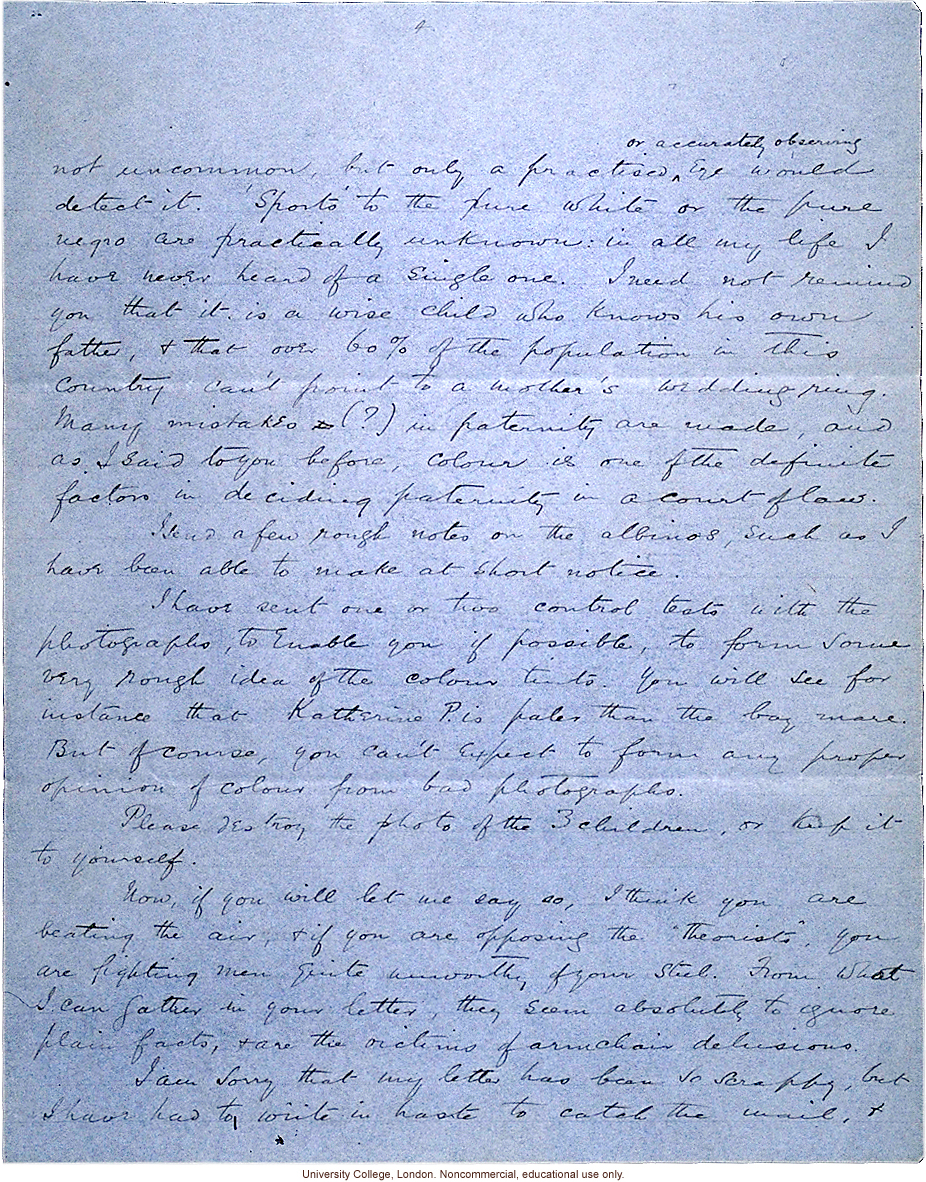 4.
or accurately observing
not uncommon, but only a practised ^ Eye would
detect it. "Sports" to the pure white or the pure
negro are practically unknown: in all my life I
have never heard of a single one. I need not remind
you that it is a wise child who knows his own
father, & that over 60% of the population in this
country can't point to a mother's wedding ring.
Many mistakes (?) in paternity are made, and
as I said to you before, colour is one of the definite
factors in deciding paternity in a court of law.
I send a few rough notes on the albinos, such as I
have been able to make at short notice.
I have sent one or two control tests with the
photographs, to Enable you if possible, to form some
very rough idea of the colour tints. You will see for
instance that Katherine P. is paler than the bay mare.
But of course, you can't Expect to form any proper
opinion of colour from bad photographs.
Please destroy the photo of the 3 children, or keep it
to yourself.
Now, if you will let me say so, I think you are
beating the air, & if you are opposing the "theorists", you
are fighting men quite unworthy of your steel. From what
I can gather in your letter, they seem absolutely to ignore
plain facts, & are the victims of armchair delusions.
I am sorry that my letter has been so scrappy, but
I have had to write in haste to catch the mail, &
University College, London. Noncommercial, educational use only.